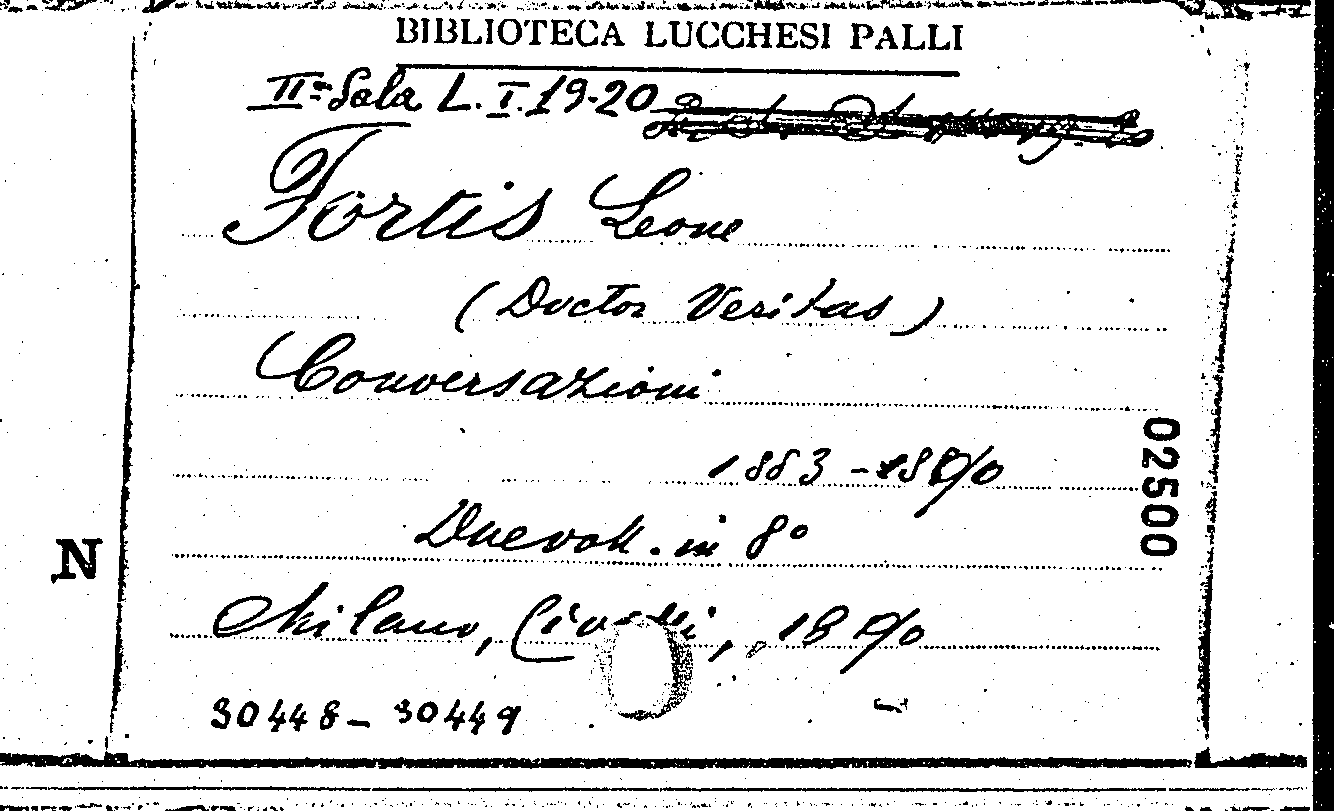 BIBLIOTECA LUCCHESI PALLI
IIª Sala L. I. 19-20
Fortis Leone
(Doctor Veritas)
Conversazioni
1883-1890
Due voll. in 8º
Milano, Civelli, 1890
30448-30449
N
02500